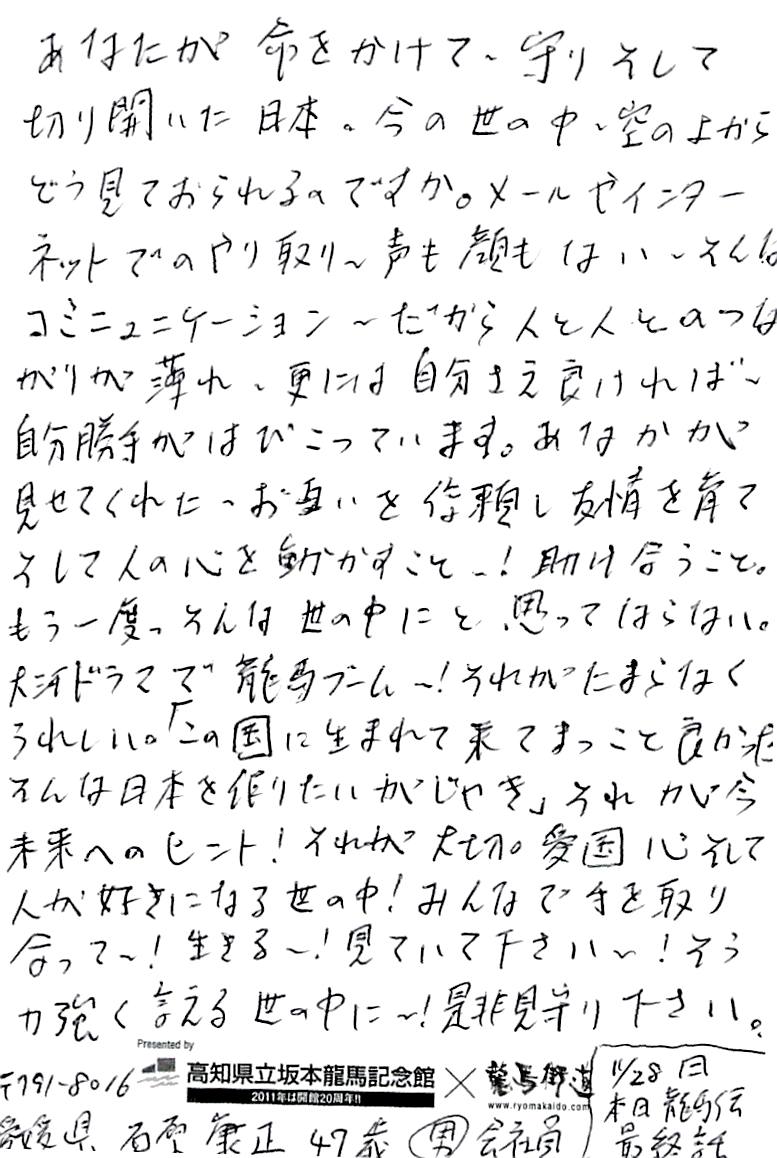 あなたが 命をかけて〜守りそして
切り開いた日本。今の世の中〜空の上から
どう見ておられるのですか。メールやインター
ネットでのやり取り〜声も顔もない〜そんな
コミニュニケーション〜だから人と人とのつな
がりが薄れ、更には自分さえ良ければ〜
自分勝手がはびこっています。あなたが
見せてくれた〜お互いを信頼し友情を育て
そして人の心を動かすこと〜!助け合うこと。
もう一度、そんな世の中にと思ってならない。
大河ドラマで龍馬ブーム〜!それがたまらなく
うれしい。「この国に生まれて来てまっこと良かった
そんな日本を作りたいがじゃき」それが今
未来へのヒント!それが大切。愛国心そして
人が好きになる世の中!みんなで手を取り
合って〜!生きる〜!見ていて下さい〜!そう
力強く言える世の中に〜!是非見守り下さい。
Presented by
高知県立坂本龍馬記念館×龍馬街道
2011年は開館20周年!!
www.ryomakaido.com
〒791-8016
愛媛県 康正 47歳 男 会社員
11/28日
本日龍馬伝
最終話